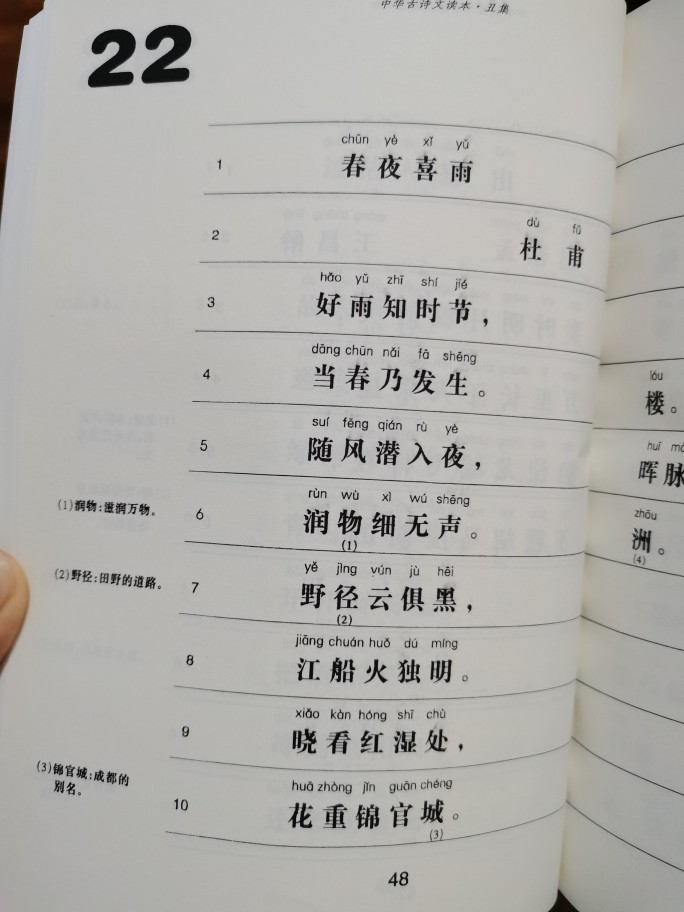 中华古诗文读本·丑集
22
1
chūn yè xǐ yǔ
春夜喜雨
2
dù fǔ
杜 甫
3
hǎo yǔ zhī shí jié
好雨知时节，
4
dāng chūn nǎi fā shēng
当春乃发生。
5
suí fēng qián rù yè
随风潜入夜，
6
rùn wù xì wú shēng
润物细无声。
(1)
(1)润物：滋润万物。
7
yě jìng yún jù hēi
野径云俱黑，
(2)
(2)野径：田野的道路。
8
jiāng chuán huǒ dú míng
江船火独明。
9
xiǎo kàn hóng shī chù
晓看红湿处，
10
huā zhòng jǐn guān chéng
花重锦官城。
(3)
(3)锦官城：成都的
别名。
48
lóu
楼。
huī
晖脉
zhōu
洲。
(4)